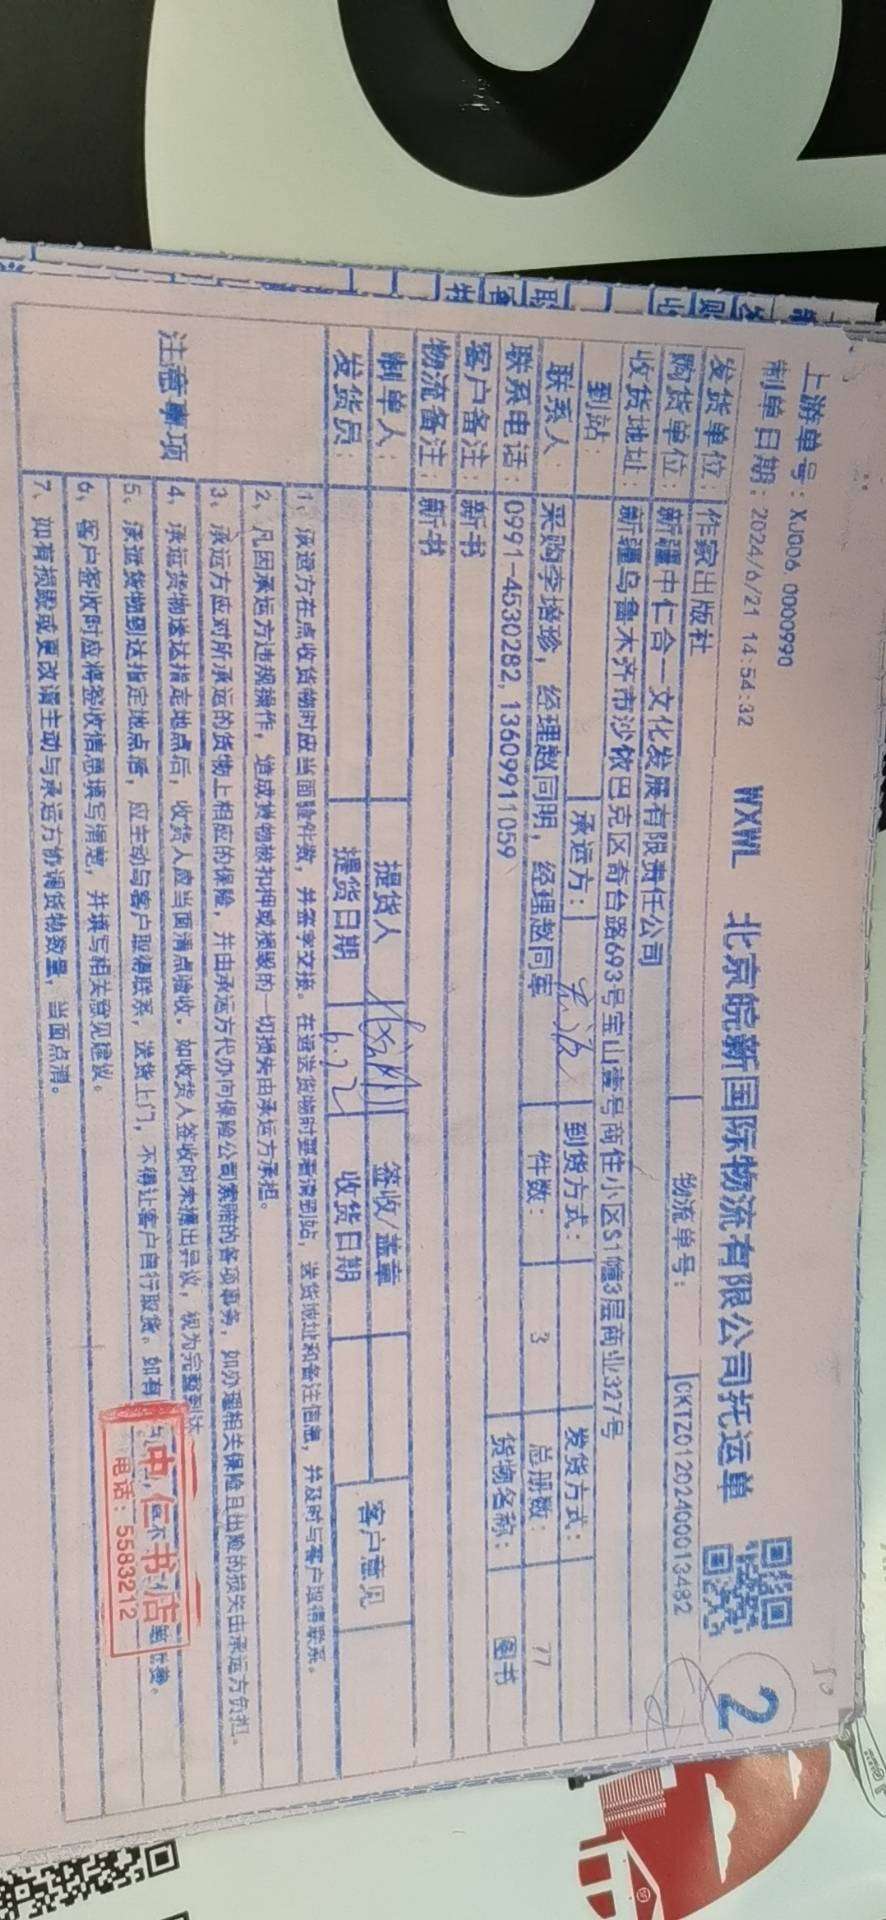 上游单号：XJ006 0000990
制单日期：2024/6/21 14:54:32
WXWL 北京皖新国际物流有限公司托运单
2
发货单位：作家出版社
物流单号：CKTZ0120240013482
购货单位：新疆中仁合一文化发展有限责任公司
收货地址：新疆乌鲁木齐市沙依巴克区奇台路693号宝山壹号商住小区S1幢3层商业327号
到站：
承运方：
到货方式：
发货方式：
联系人：采购李培珍，经理赵同明，经理赵同军
件数：3
总册数：77
联系电话：0991-4530282,13609911059
货物名称：图书
客户备注：新书
物流备注：新书
制单人：
提货人
签收/盖章
客户意见
发货员：
提货日期
收货日期
注意事项
1、承运方在点收货物时应当面验件数，并签字交接。在运送货物时要看清到站，送货地址和备注信息，并及时与客户取得联系。
2、凡因承运方违规操作，造成货物被扣押或损毁的一切损失由承运方承担。
3、承运方应对所承运的货物上相应的保险，并由承运方代办向保险公司索赔的各项事务，如办理相关保险且出险的损失由承运方负担。
4、承运货物送达指定地点后，收货人应当面清点验收，如收货人签收时未提出异议，视为完整到达
5、承运货物到达指定地点后，应主动与客户取得联系，送货上门，不得让客户自行取货。如有
6、客户签收时应将签收信息填写清楚，并填写相关意见建议。
7、如有损毁或更改请主动与承运方协调货物数量，当面点清。
中仁书店
电话：5583212